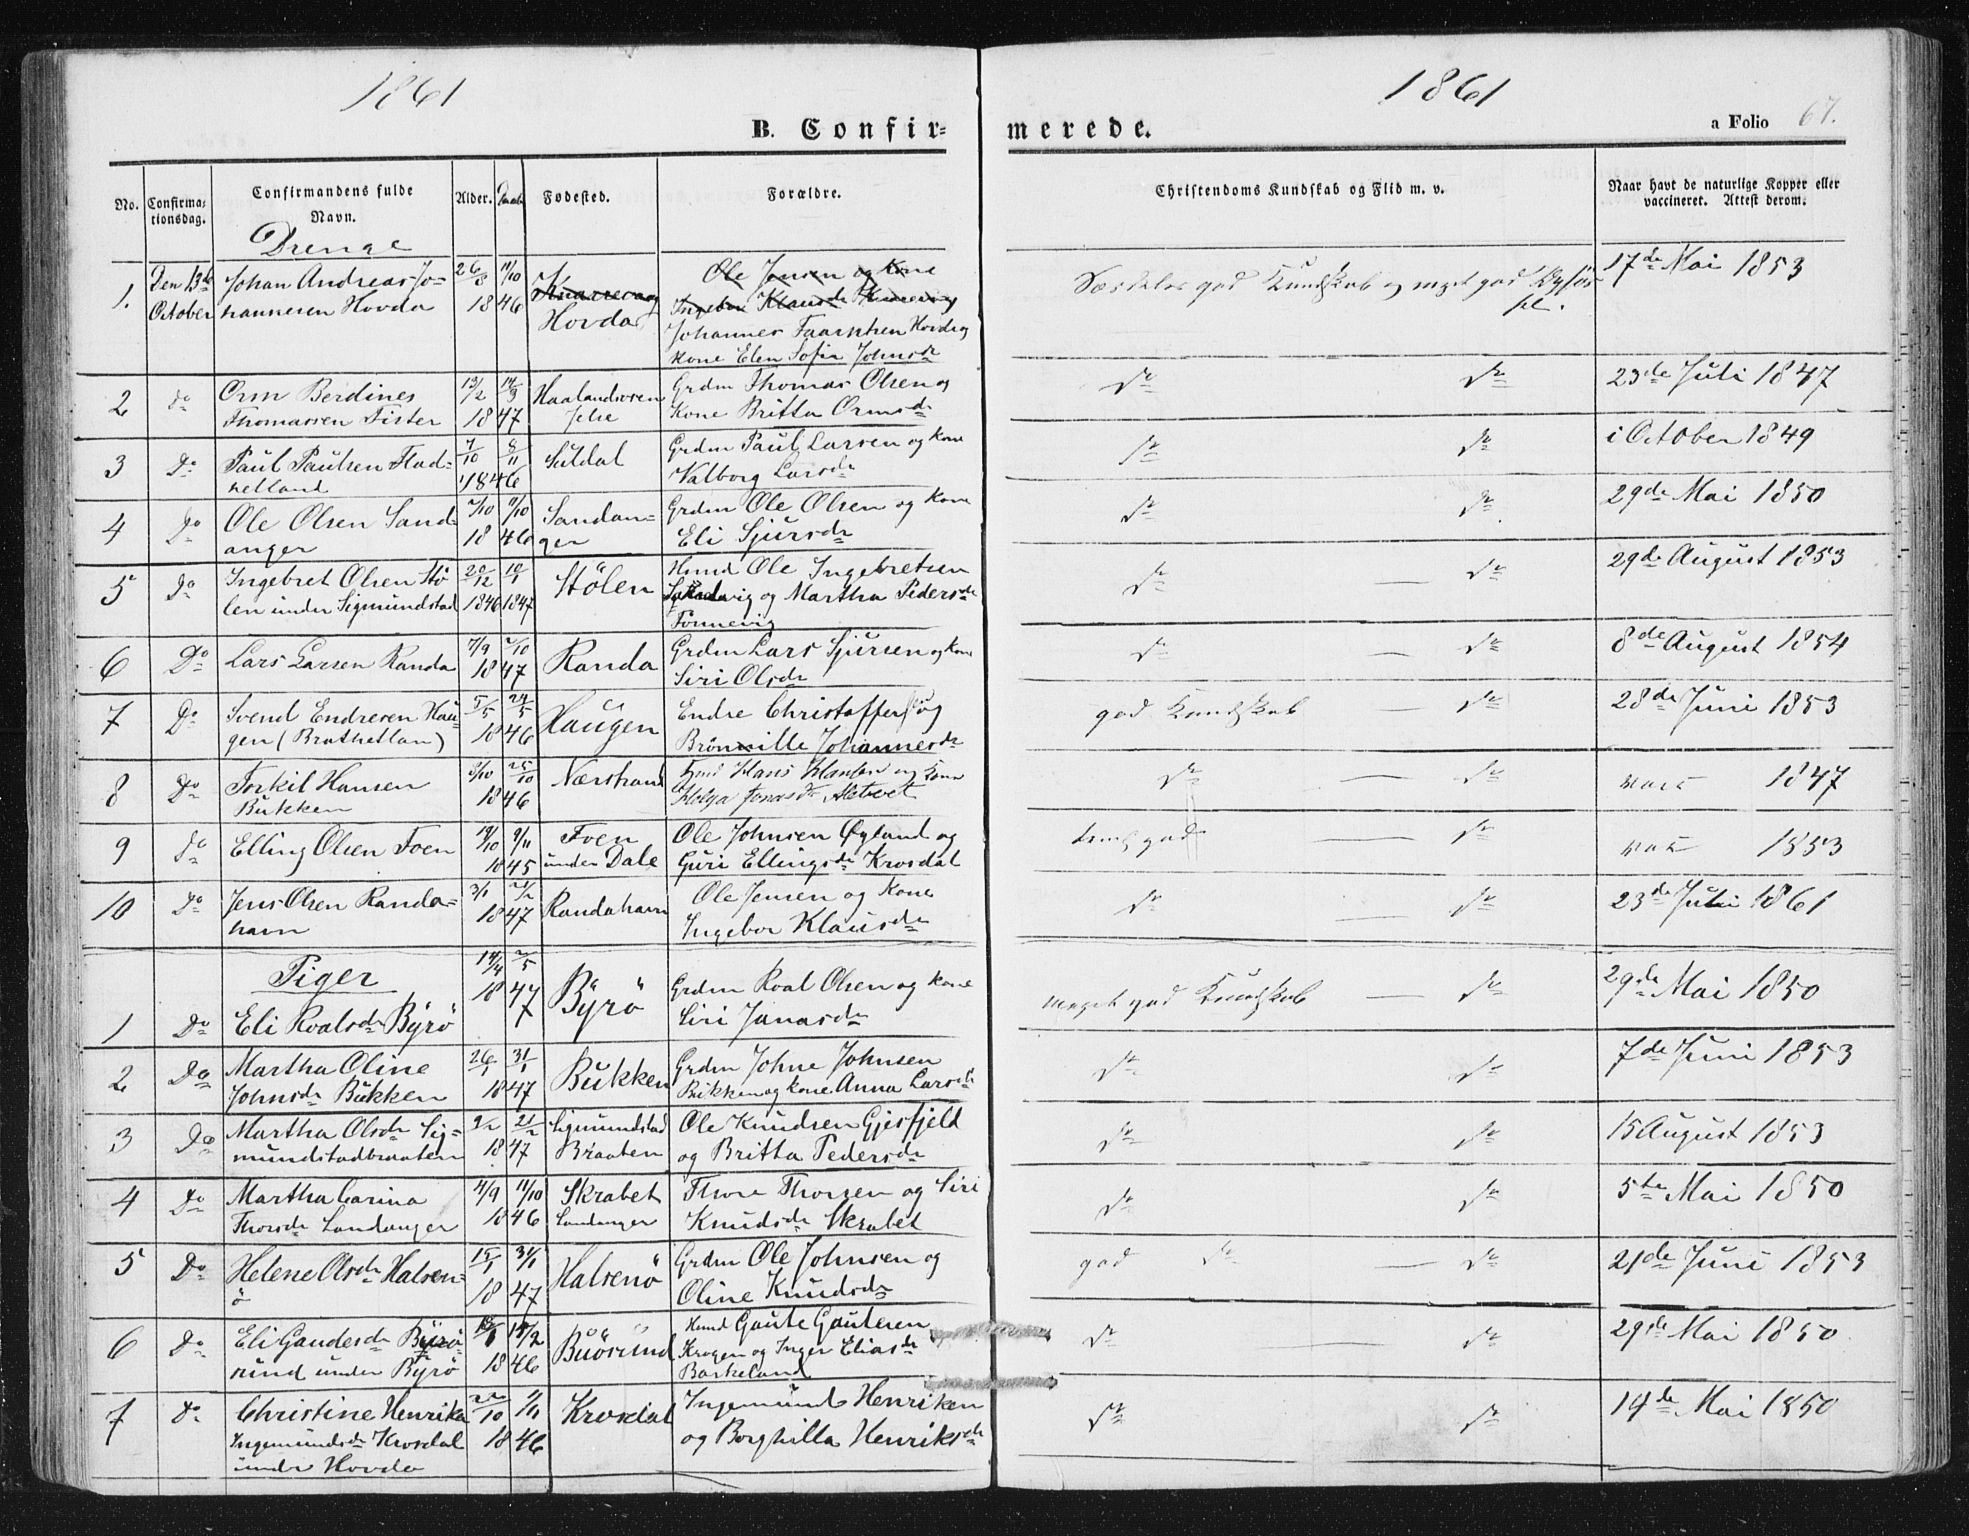 1861
1861
B. Confir=
merede.
a Folio 67.
No. Confirma-tionsdag. Confirmandens fulde Navn. Alder. Fødested. Forældre. Christendoms Kundskab og Flid m. v. Naar havt de naturlige Kopper eller vaccineret. Attest derom.
Drenge
1. Den 13de October Johan Andreas Johannesen Hovda 26/8 11/10 1846 Hovda Ole Jensen og Kone
Ingebor Klausdr
Johannes Hovda og
Kone Elen Sofia Johnsdr 17de Mai 1853
2 do Orm Berdines
Thomassen Fister 13/2 14/3 1847 Haalandsosen
Jelse Grdm Thomas Olsen og
Kone Britta Ormsdr do do 23de Juli 1847
3 Do Paul Paulsen Flad=
helland 7/10 8/11 1846 Suldal Grdm Paul Larsen og Kone
Valborg Larsdr do do i October 1849
4 Do Ole Olsen Sand=
anger 2/10 9/10 1846 Sandan=
ger Grdm Ole Olsen og Kone
Eli Sjursdr do do 29de Mai 1850
5 Do Ingebret Olsen Stø
len under Sigmundstad 20/12 10/1 1846 1847 Stölen Huusmd Ole Ingebretsen
og Martha Pedersdr
Fonnevig do — do 29de August 1853
6 Do Lars Larsen Randa 7/9 2/10 1847 Randa Grdm Lars Sjursen og Kone
Siri Olsdr do — do 8de August 1854
7 Do Svend Endresen Hau=
gen (Brathetlan) 5/5 24/5 1846 Haugen Endre Christoffers og
Brönnille Johannesdr god Kundskab — do 28de Juni 1853
8 Do Torkil Hansen
Bukken 9/10 25/10 1846 Nærstrand Hans Hansen og Kone
Helga Jonasdr do — do 1847
9 do Elling Olsen Foen 19/10 9/11 1845 Foen
under Dale Ole Johnsen Øyland og
Guri Ellingsdr Krosdal temlig god — do 1853
10 Do Jens Olsen Randa=
havn 3/1 2/2 1847 Randahavn Ole Jensen og Kone
Ingebor Klausdr do — do 23de Juli 1861
Piger
1 Do Eli Roalsdr Byrö 14/4 2/5 1847 Byrö Grdm Roal Olsen og Kone
Siri Janasdr meget god Kundskab — do 29de Mai 1850
2 Do Martha Oline
Johnsdr Bukken 26/1 31/1 1847 Bukken Grdm Johne Johnsen
Bukken og Kone Anna Larsdr do do 7de Juni 1853
3 Do Martha Olsdr Sig=
mundstadbraaten 2/2 21/2 1847 Sigmundstad
Braaten Ole Knudsen Gjesfjeld
og Britta Pedersdr do do 15 August 1853
4 Do Martha Carina
Thorsdr Sandanger 4/9 11/10 1846 Skrabet
Sandanger Thore Thorsen og Siri
Knudsdr Skrabet do do 5te Mai 1850
5 Do Helene Olsdr Halsen=
ö 15/1 31/1 1847 Halsenö Grdm Ole Johnsen og
Oline Knudsdr god do — do 21de Juni 1853
6 Do Eli Gaudesdr Byrö
sund under Byrö 1846 Büösund Huusmd Gaute Gautesen
Krogen og Inger Eliasdr
Barkeland do — do 29de Mai 1850
7 do Christine Henrika
Ingemundsdr Krosdal
under Hovda 22/10 1/11 1846 Krosdal Ingemund Henriksen
og Borghilla Henriksdr do do 14de Mai 1850